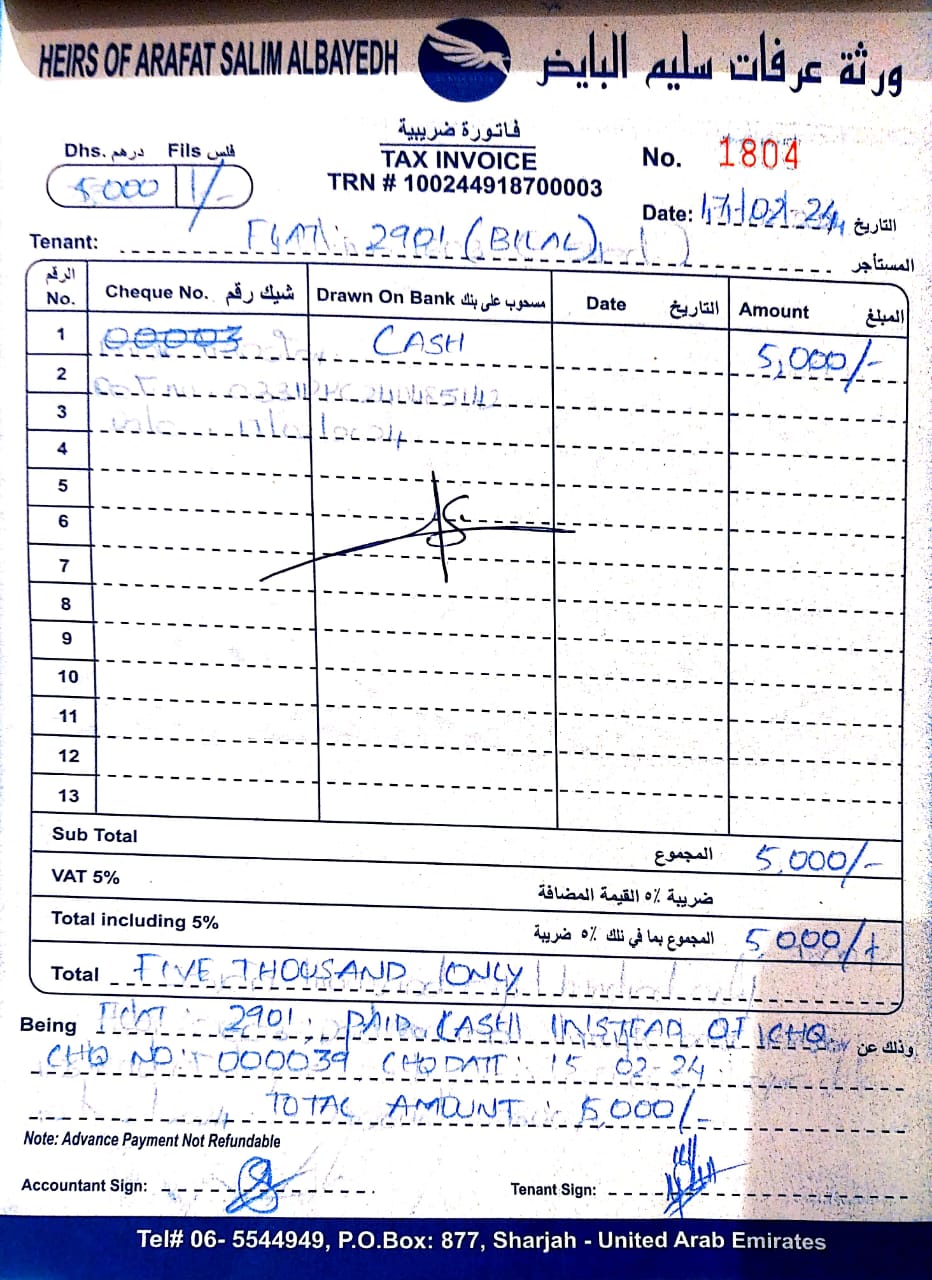 HEIRS OF ARAFAT SALIM ALBAYEDH ورثة عرفات سليم البايض
فاتورة ضريبية
Dhs. درهم Fils فلس TAX INVOICE No. 1804
5000 /- TRN # 100244918700003
Date: 17-02-24 التاريخ
Tenant: FLAT: 2901 (BILAL) المستأجر
الرقم No. Cheque No. شيك رقم Drawn On Bank مسحوب على بنك Date التاريخ Amount المبلغ
1 00003 CASH 5,000/-
2
3
4
5
6
7
8
9
10
11
12
13
Sub Total المجموع 5,000/-
VAT 5% ضريبة ٥٪ القيمة المضافة
Total including 5% المجموع بما في ذلك ٥٪ ضريبة 5000/-
Total FIVE THOUSAND ONLY
Being FLAT: 2901, PAID CASH INSTEAD OF CHQ. وذلك عن
CHQ NO: 000039 CHQ DATT: 15 02-24
TOTAL AMOUNT: 5,000/-
Note: Advance Payment Not Refundable
Accountant Sign: Tenant Sign:
Tel# 06- 5544949, P.O.Box: 877, Sharjah - United Arab Emirates